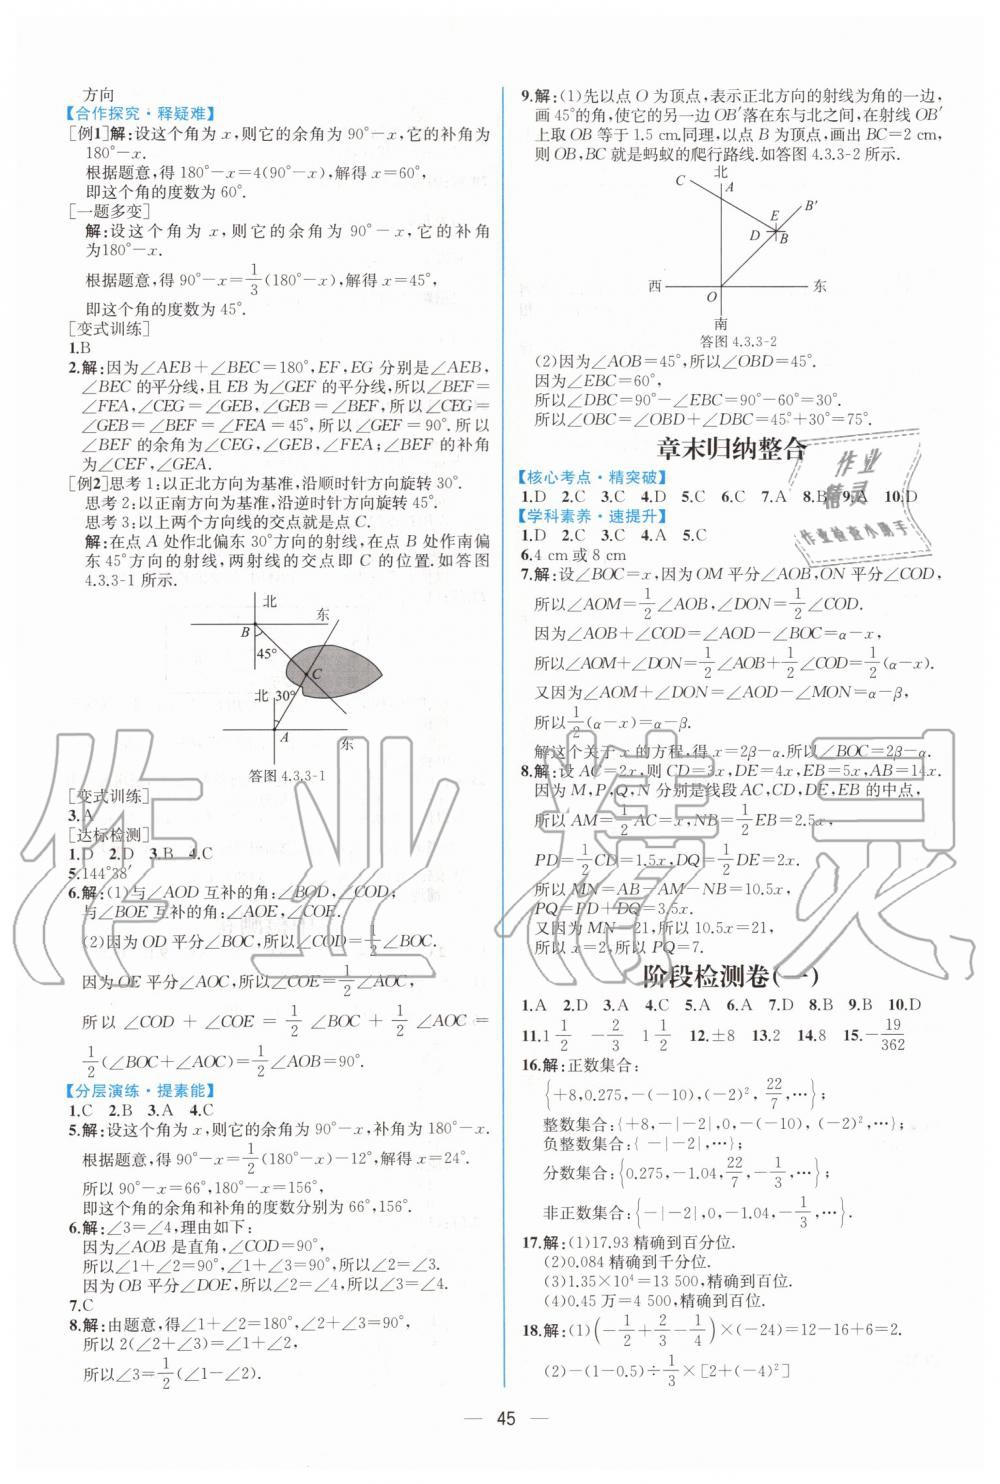 方向
【合作探究·释疑难】
[例1]解:设这个角为x,则它的余角为90°-x,它的补角为
180°-x.
根据题意,得180°-x=4(90°-x),解得x=60°,
即这个角的度数为60°.
[一题多变]
解:设这个角为x,则它的余角为90°-x,它的补角
为180°-x.
根据题意,得90°-x=1/3(180°-x),解得x=45°,
即这个角的度数为45°.
[变式训练]
1.B
2.解:因为∠AEB+∠BEC=180°,EF,EG分别是∠AEB,
∠BEC的平分线,且EB为∠GEF的平分线,所以∠BEF=
∠FEA,∠CEG=∠GEB,∠GEB=∠BEF,所以∠CEG=
∠GEB=∠BEF=∠FEA=45°,所以∠GEF=90°.所以
∠BEF的余角为∠CEG,∠GEB,∠FEA;∠BEF的补角
为∠CEF,∠GEA.
[例2]思考1:以正北方向为基准,沿顺时针方向旋转30°.
思考2:以正南方向为基准,沿逆时针方向旋转45°.
思考3:以上两个方向线的交点就是点C.
解:在点A处作北偏东30°方向的射线,在点B处作南偏
东45°方向的射线,两射线的交点即C的位置.如答图
4.3.3-1所示.
北
东
B
45°
C
北
30°
A
东
答图4.3.3-1
[变式训练]
3.A
[达标检测]
1.D 2.D 3.B 4.C
5.144°38′
6.解:(1)与∠AOD互补的角:∠BOD,∠COD;
与∠BOE互补的角:∠AOE,∠COE.
(2)因为OD平分∠BOC,所以∠COD=1/2∠BOC.
因为OE平分∠AOC,所以∠COE=1/2∠AOC,
所以∠COD+∠COE=1/2∠BOC+1/2∠AOC=
1/2(∠BOC+∠AOC)=1/2∠AOB=90°.
【分层演练·提素能】
1.C 2.B 3.A 4.C
5.解:设这个角为x,则它的余角为90°-x,补角为180°-x.
根据题意,得90°-x=1/2(180°-x)-12°,解得x=24°.
所以90°-x=66°,180°-x=156°,
即这个角的余角和补角的度数分别为66°,156°.
6.解:∠3=∠4,理由如下:
因为∠AOB是直角,∠COD=90°,
所以∠1+∠2=90°,∠1+∠3=90°,所以∠2=∠3.
因为OB平分∠DOE,所以∠2=∠4,所以∠3=∠4.
7.C
8.解:由题意,得∠1+∠2=180°,∠2+∠3=90°,
所以2(∠2+∠3)=∠1+∠2,
所以∠3=1/2(∠1-∠2).
9.解:(1)先以点O为顶点,表示正北方向的射线为角的一边,
画45°的角,使它的另一边OB′落在东与北之间,在射线OB′
上取OB等于1.5 cm.同理,以点B为顶点,画出BC=2 cm,
则OB,BC就是蚂蚁的爬行路线.如答图4.3.3-2所示.
北
C
A
E
B′
D
B
西
O
东
南
答图4.3.3-2
(2)因为∠AOB=45°,所以∠OBD=45°.
因为∠EBC=60°,
所以∠DBC=90°-∠EBC=90°-60°=30°.
所以∠OBC=∠OBD+∠DBC=45°+30°=75°.
章末归纳整合
【核心考点·精突破】
1.D 2.C 3.C 4.D 5.C 6.C 7.A 8.B 9.A 10.D
【学科素养·速提升】
1.D 2.C 3.C 4.A 5.C
6.4 cm或8 cm
7.解:设∠BOC=x,因为OM平分∠AOB,ON平分∠COD,
所以∠AOM=1/2∠AOB,∠DON=1/2∠COD.
因为∠AOB+∠COD=∠AOD-∠BOC=α-x,
所以∠AOM+∠DON=1/2∠AOB+1/2∠COD=1/2(α-x).
又因为∠AOM+∠DON=∠AOD-∠MON=α-β,
所以1/2(α-x)=α-β.
解这个关于x的方程,得x=2β-α.所以∠BOC=2β-α.
8.解:设AC=2x,则CD=3x,DE=4x,EB=5x,AB=14x.
因为M,P,Q,N分别是线段AC,CD,DE,EB的中点,
所以AM=1/2AC=x,NB=1/2EB=2.5x,
PD=1/2CD=1.5x,DQ=1/2DE=2x.
所以MN=AB-AM-NB=10.5x,
PQ=PD+DQ=3.5x.
又因为MN=21,所以10.5x=21,
所以x=2,所以PQ=7.
阶段检测卷(一)
1.A 2.D 3.A 4.C 5.A 6.A 7.D 8.B 9.B 10.D
11.1 1/2 -2/3 1 1/2 12.±8 13.2 14.8 15.-19/362
16.解:正数集合:
{+8,0.275,-(-10),(-2)²,22/7,…};
整数集合:{+8,-|-2|,0,-(-10),(-2)²,…};
负整数集合:{-|-2|,…};
分数集合:{0.275,-1.04,22/7,-1/3,…};
非正数集合:{-|-2|,0,-1.04,-1/3,…}.
17.解:(1)17.93精确到百分位.
(2)0.084精确到千分位.
(3)1.35×10⁴=13 500,精确到百位.
(4)0.45万=4 500,精确到百位.
18.解:(1)(-1/2+2/3-1/4)×(-24)=12-16+6=2.
(2)-(1-0.5)÷1/3×[2+(-4)²]
45
作业
精灵
作业检查小助手
作业精灵